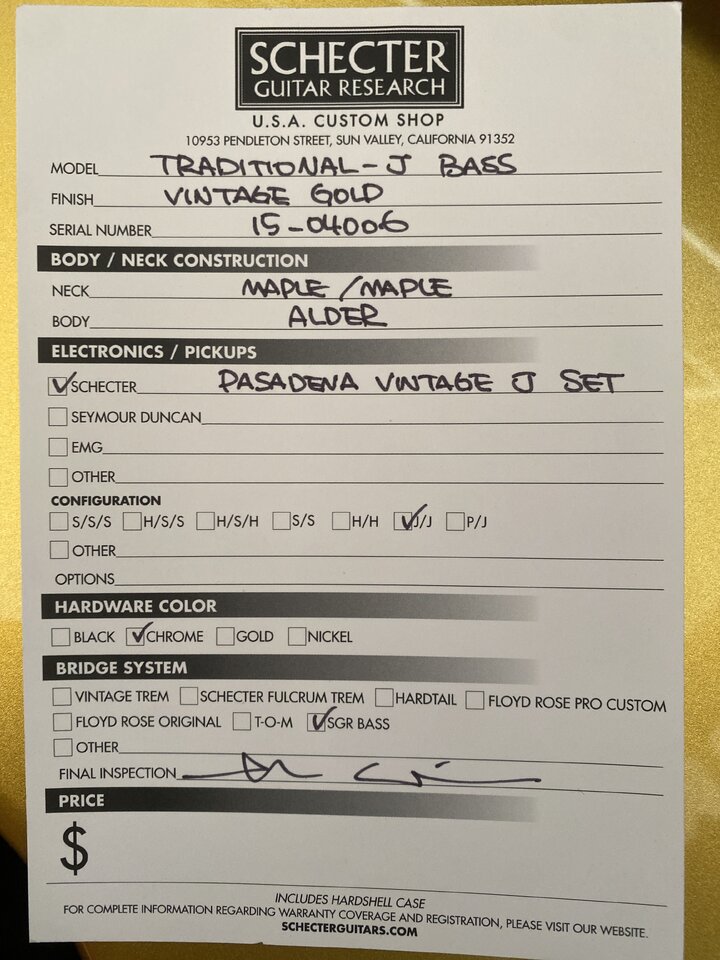 SCHECTER
GUITAR RESEARCH
U.S.A. CUSTOM SHOP
10953 PENDLETON STREET, SUN VALLEY, CALIFORNIA 91352
MODEL TRADITIONAL-J BASS
FINISH VINTAGE GOLD
SERIAL NUMBER 15-04006
BODY / NECK CONSTRUCTION
NECK MAPLE/MAPLE
BODY ALDER
ELECTRONICS / PICKUPS
SCHECTER PASADENA VINTAGE J SET
SEYMOUR DUNCAN
EMG
OTHER
CONFIGURATION
S/S/S H/S/S H/S/H S/S H/H J/J P/J
OTHER
OPTIONS
HARDWARE COLOR
BLACK CHROME GOLD NICKEL
BRIDGE SYSTEM
VINTAGE TREM SCHECTER FULCRUM TREM HARDTAIL FLOYD ROSE PRO CUSTOM
FLOYD ROSE ORIGINAL T-O-M SGR BASS
OTHER
FINAL INSPECTION
PRICE
$
INCLUDES HARDSHELL CASE
FOR COMPLETE INFORMATION REGARDING WARRANTY COVERAGE AND REGISTRATION, PLEASE VISIT OUR WEBSITE.
SCHECTERGUITARS.COM